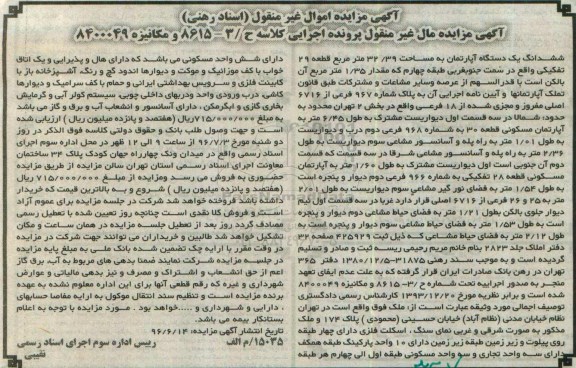 آگهی مزایده اموال غیر منقول (اسناد رهنی)
آگهی مزایده مال غیر منقول پرونده اجرایی کلاسه ح/۳-۸۶۱۵ و مکانیزه ۸۴۰۰۰۴۹
ششدانگ یک دستگاه آپارتمان به مساحت ۳۲/۳۹ متر مربع قطعه ۲۹
تفکیکی واقع در سمت جنوبغربی طبقه چهارم که مقدار ۱/۳۵ متر مربع آن
بالکن است با قدرالسهم از عرصه وسایر مشاعات و مشترکات طبق قانون
تملک آپارتمانها و آیین نامه اجرایی آن به پلاک شماره ۹۶۷ فرعی از ۶۷۱۶
اصلی مفروز و مجزی شده از ۱۸ فرعی واقع در بخش ۲ تهران محدود به
حدود: شمالا در سه قسمت اول دیواریست مشترک به طول ۶/۴۵ متر به
آپارتمان مسکونی قطعه ۳۰ به شماره ۹۶۸ فرعی دوم درب و دیواریست
به طول ۱/۰۱ متر به راه پله و آسانسور مشاعی سوم دیواریست به طول
۲/۳۶ متر به راه پله و آسانسور مشاعی شرقا در سه قسمت که قسمت
دوم آن جنوبی است اول دیواریست مشترک به طول ۱/۶۰ متر به آپارتمان
مسکونی قطعه ۲۸ تفکیکی به شماره ۹۶۶ فرعی دوم دیوار و پنجره است
به طول ۱/۵۴ متر به فضای نور گیر مشاعی سوم دیواریست به طول ۲/۰۱
متر به ۲۵ و ۲۶ فرعی از ۶۷۱۶ اصلی قرار دارد غربا در سه قسمت اول نیم
دیوار جلوی بالکن بطول ۱/۲۱ متر به فضای حیاط مشاعی دوم دیوار و پنجره
است به طول ۱/۵۳ متر به فضای حیاط مشاعی سوم دیوار و پنجره است به
طول ۲/۱۲ متر به فضای حیاط مشاعی که ذیل ثبت ۴۲۵۹۲۹ صفحه ۳۲
دفتر املاک جلد ۲۸۲۳ بنام خانم مریم رحیمی ریسه ثبت و صادر و تسلیم
گردیده است و به موجب سند رهنی ۳۱۸۷۵-۱۳۸۰/۱۲/۵ دفتر ۳۶۵
تهران در رهن بانک صادرات ایران قرار گرفته که به علت عدم ایفای تعهد
منجر به صدور اجراییه تحت شماره ح/۳-۸۶۱۵ و مکانیزه ۸۴۰۰۰۴۹
شده است و برابر نظریه مورخ ۱۳۹۳/۱۲/۲۰ کارشناس رسمی دادگستری
توصیف اجمالی مورد وثیقه عبارت است از: ملک فوق واقع است در تهران
نظام خیابان مدنی (نظام آباد) خیابان حسینی (محمودی) پلاک ۱۷۴ و ملک
مذکور به صورت شرقی و غربی نمای سنگ. اسکلت فلزی دارای چهار طبقه
روی پیلوت و زیر زمین طبقه زیر زمین دارای ۱۰ واحد پارکینگ طبقه همکف
دارای سه واحد تجاری و سه واحد مسکونی طبقه اول الی چهارم هر طبقه
دارای شش واحد مسکونی می باشد که دارای هال و پذیرایی و یک اتاق
خواب با کف موزاییک و موکت و دیوارها اندود گچ و رنگ، آشپزخانه باز با
کابینت فلزی و سرویس بهداشتی ایرانی و حمام با کف سرامیک و دیوارها
کاشی، درب ورودی واحد ودربهای داخلی چوبی، سیستم کولر آبی و گرمایش
بخاری گازی و آبگرمکن. دارای آسانسور و انشعاب آب و برق و گاز می باشد
به مبلغ ۷۱۵/۰۰۰/۰۰۰ ریال (هفتصد و پانزده میلیون ریال) ارزیابی شده
است و جهت وصول طلب بانک و حقوق دولتی کلاسه فوق الذکر در روز
دو شنبه مورخ ۹۶/۷/۳ از ساعت ۹ الی ۱۲ ظهر در محل اداره سوم اجرای
اسناد رسمی واقع در میدان ونک چهارراه جهان کودک پلاک ۳۳ ساختمان
معاونت اجرای اسناد رسمی استان تهران سالن مزایده از طریق مزایده
حضوری به فروش می رسد ومزایده از مبلغ ۷۱۵/۰۰۰/۰۰۰ ریال
(هفتصد و پانزده میلیون ریال) شروع و به بالاترین قیمت که خریدار
داشته باشد فروخته خواهد شد شرکت در جلسه مزایده برای عموم آزاد
است و فروش کلا نقدی است چنانچه روز تعیین شده با تعطیل رسمی
مصادف گردد روز بعد از تعطیل جلسه مزایده در همان ساعت و مکان
تشکیل خواهد شد طالبین و خریداران می توانند جهت شرکت در مزایده
در وقت مقرر با ارایه چک تضمین شده بانک ملی به مبلغ پایه مزایده
در جلسه مزایده شرکت نمایند ضمنا بدهی های مربوط به آب. برق گاز
اعم از حق انشعاب و اشتراک و مصرف و نیز بدهی مالیاتی و عوارض
شهرداری و غیره که رقم قطعی آنها برای این اداره معلوم نشده به عهده
برنده مزایده است و تنظیم سند انتقال موکول به ارایه مفاصا حسابهای
دارایی و شهرداری و ... خواهد بود. مورد مزایده با توجه به اعلام
بستانکار بیمه می باشد.
تاریخ انتشار آگهی مزایده: ۹۶/۶/۱۴
۱۵۰۳۵/م الف
رییس اداره سوم اجرای اسناد رسمی
نقیبی